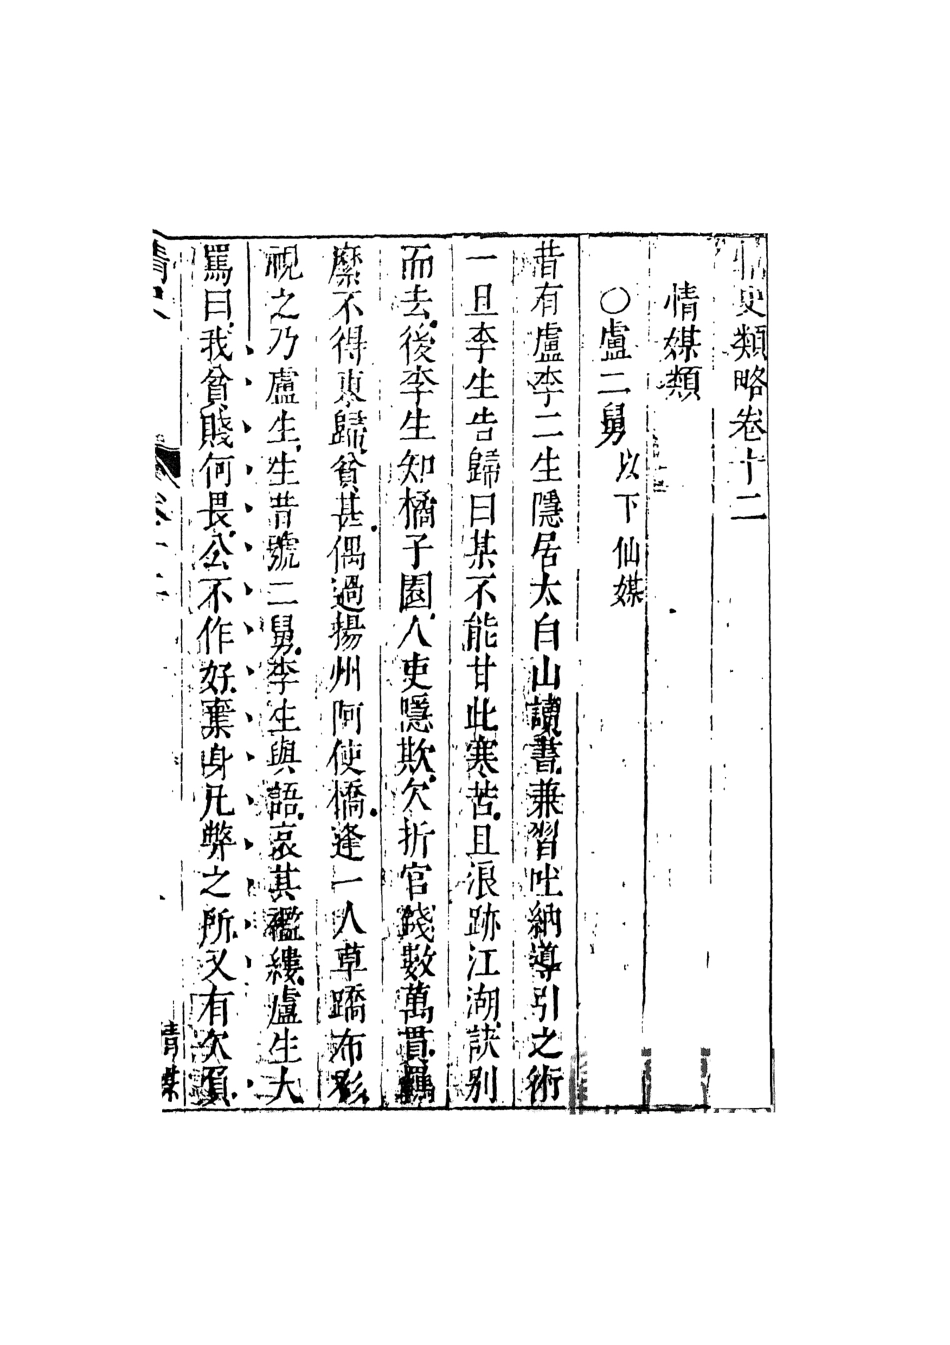 情史類略卷十二
情媒類
○盧二舅 以下仙媒
昔有盧李二生隱居太白山讀書兼習吐納導引之術
一旦李生告歸曰某不能甘此寒苦且浪跡江湖訣別
而去後李生知橘子園人吏隱欺欠折官錢數萬貫羈
縻不得東歸貧甚偶過揚州阿使橋逢一人草蹻布衫
視之乃盧生生昔號二舅李生與語哀其襤縷盧生大
罵曰我貧賤何畏公不作好棄身凡弊之所又有欠負
情史
卷十二
情媒